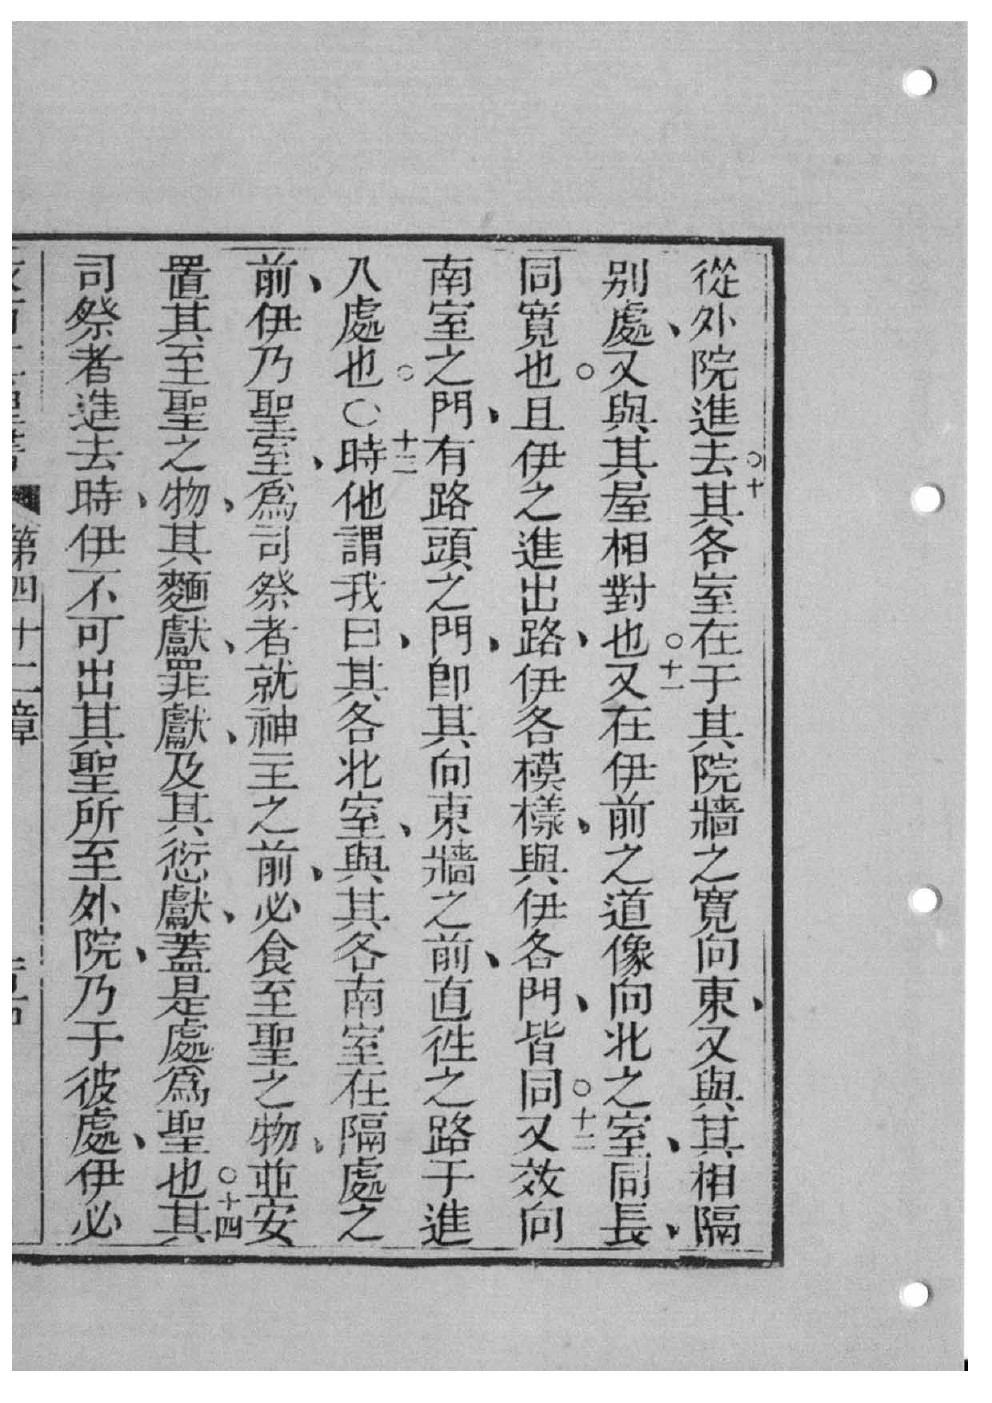 從外院進去○十其各室在于其院牆之寬向東、又與其相隔
別處、又與其屋相對也○十一又在伊前之道像向北之室、同長、
同寬也。且伊之進出路、伊各模樣、與伊各門、皆同○十二又效向
南室之門、有路頭之門、卽其向東牆之前、直徃之路于進
入處也。○十三時他謂我曰、其各北室、與其各南室在隔處之
前、伊乃聖室、爲司祭者就神主之前、必食至聖之物、並安
置其至聖之物、其麵獻、罪獻、及其愆獻、蓋是處爲聖也○十四其
司祭者進去時、伊不可出其聖所至外院、乃于彼處、伊必
第四十二章